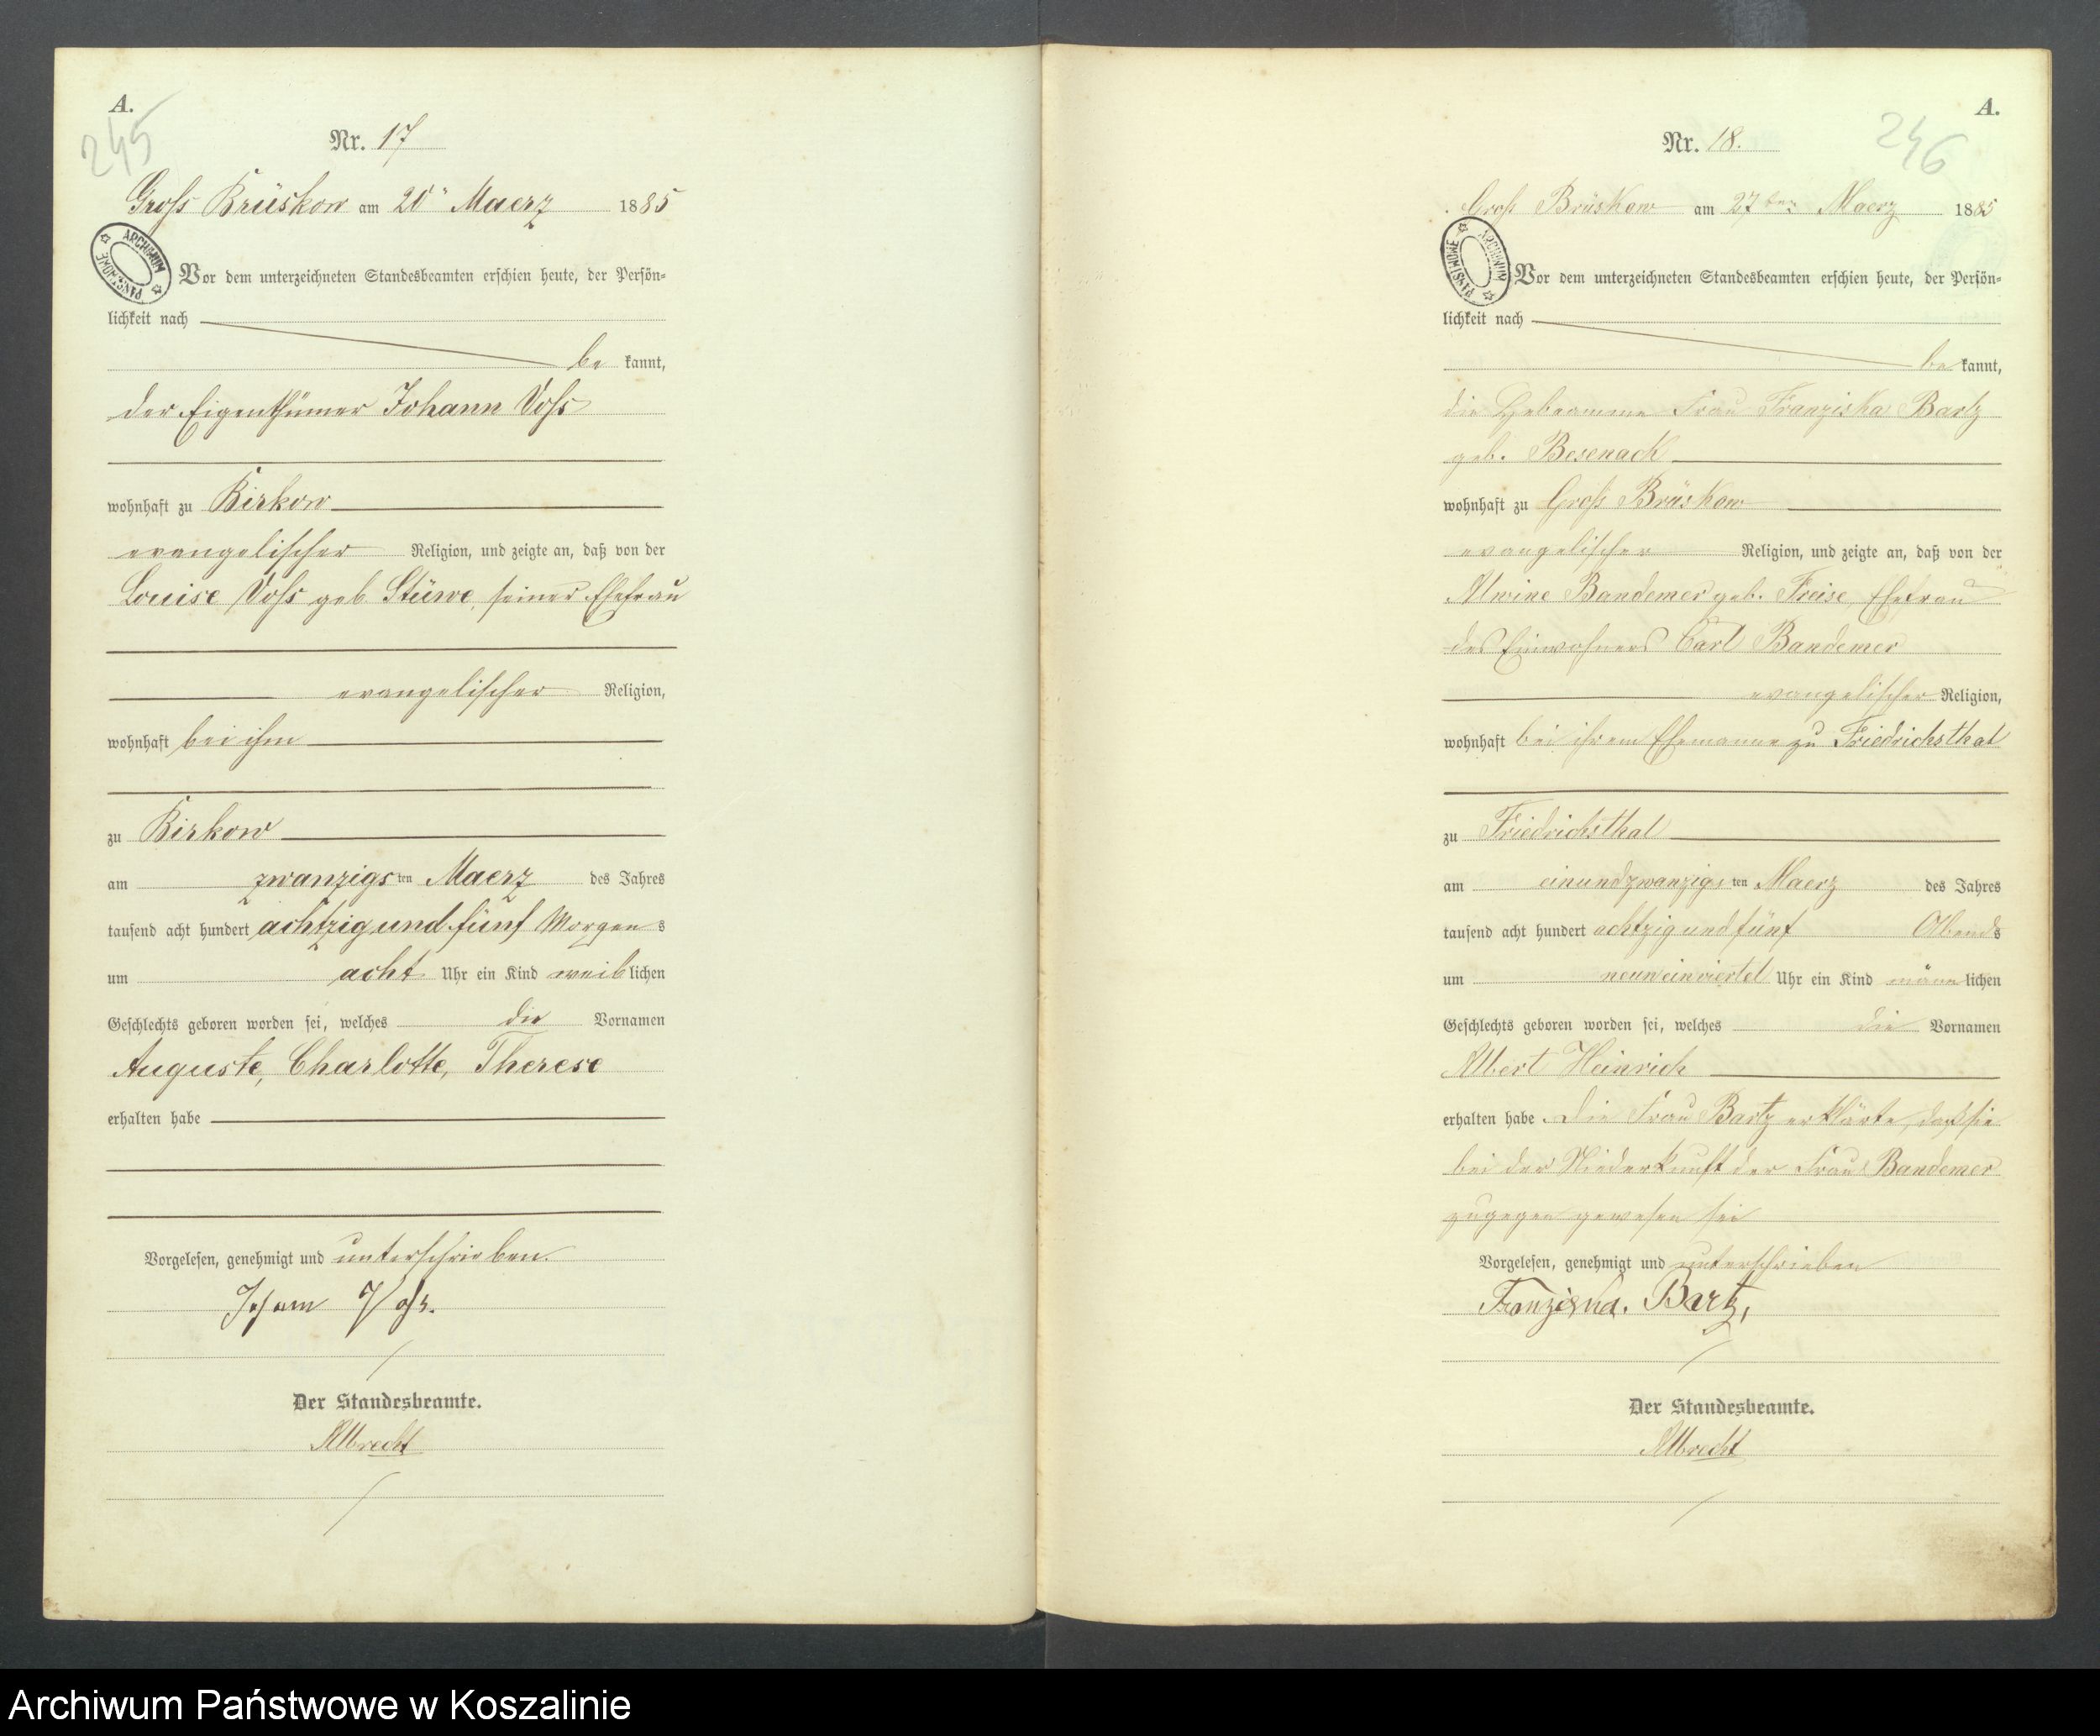 A.
245
Nr. 17
Gross Brüskow am 20ⁿ Maerz 1885
ARCHIWUM PAŃSTWOWE
Vor dem unterzeichneten Standesbeamten erschien heute, der Persön-
lichkeit nach
be kannt,
der Eigenthümer Johann Voss
wohnhaft zu Birkow
evangelischer Religion, und zeigte an, daß von der
Louise Voss geb. Stüwe, seiner Ehefrau
evangelischer Religion,
wohnhaft bei ihm
zu Birkow
am zwanzigsten Maerz des Jahres
tausend acht hundert achtzig und fünf Morgens
um acht Uhr ein Kind weiblichen
Geschlechts geboren worden sei, welches die Vornamen
Auguste, Charlotte, Therese
erhalten habe
Vorgelesen, genehmigt und unterschrieben.
Johann Voss.
Der Standesbeamte.
Albrecht
A.
246
Nr. 18.
Gross Brüskow am 27ten Maerz 1885
ARCHIWUM PAŃSTWOWE
Vor dem unterzeichneten Standesbeamten erschien heute, der Persön-
lichkeit nach
be kannt,
die Hebeamme Frau Franziska Bartz
geb. Besenack
wohnhaft zu Gross Brüskow
evangelischer Religion, und zeigte an, daß von der
Alwine Bandemer geb. Freise, Ehefrau
des Einwohners Carl Bandemer
evangelischer Religion,
wohnhaft bei ihrem Ehemanne zu Friedrichsthal
zu Friedrichsthal
am einundzwanzigsten Maerz des Jahres
tausend acht hundert achtzig und fünf Abends
um neuneinviertel Uhr ein Kind männlichen
Geschlechts geboren worden sei, welches die Vornamen
Albert Heinrich
erhalten habe. Die Frau Bartz erklärte, daß sie
bei der Niederkunft der Frau Bandemer
zugegen gewesen sei
Vorgelesen, genehmigt und unterschrieben
Franziska. Bartz,
Der Standesbeamte.
Albrecht
Archiwum Państwowe w Koszalinie